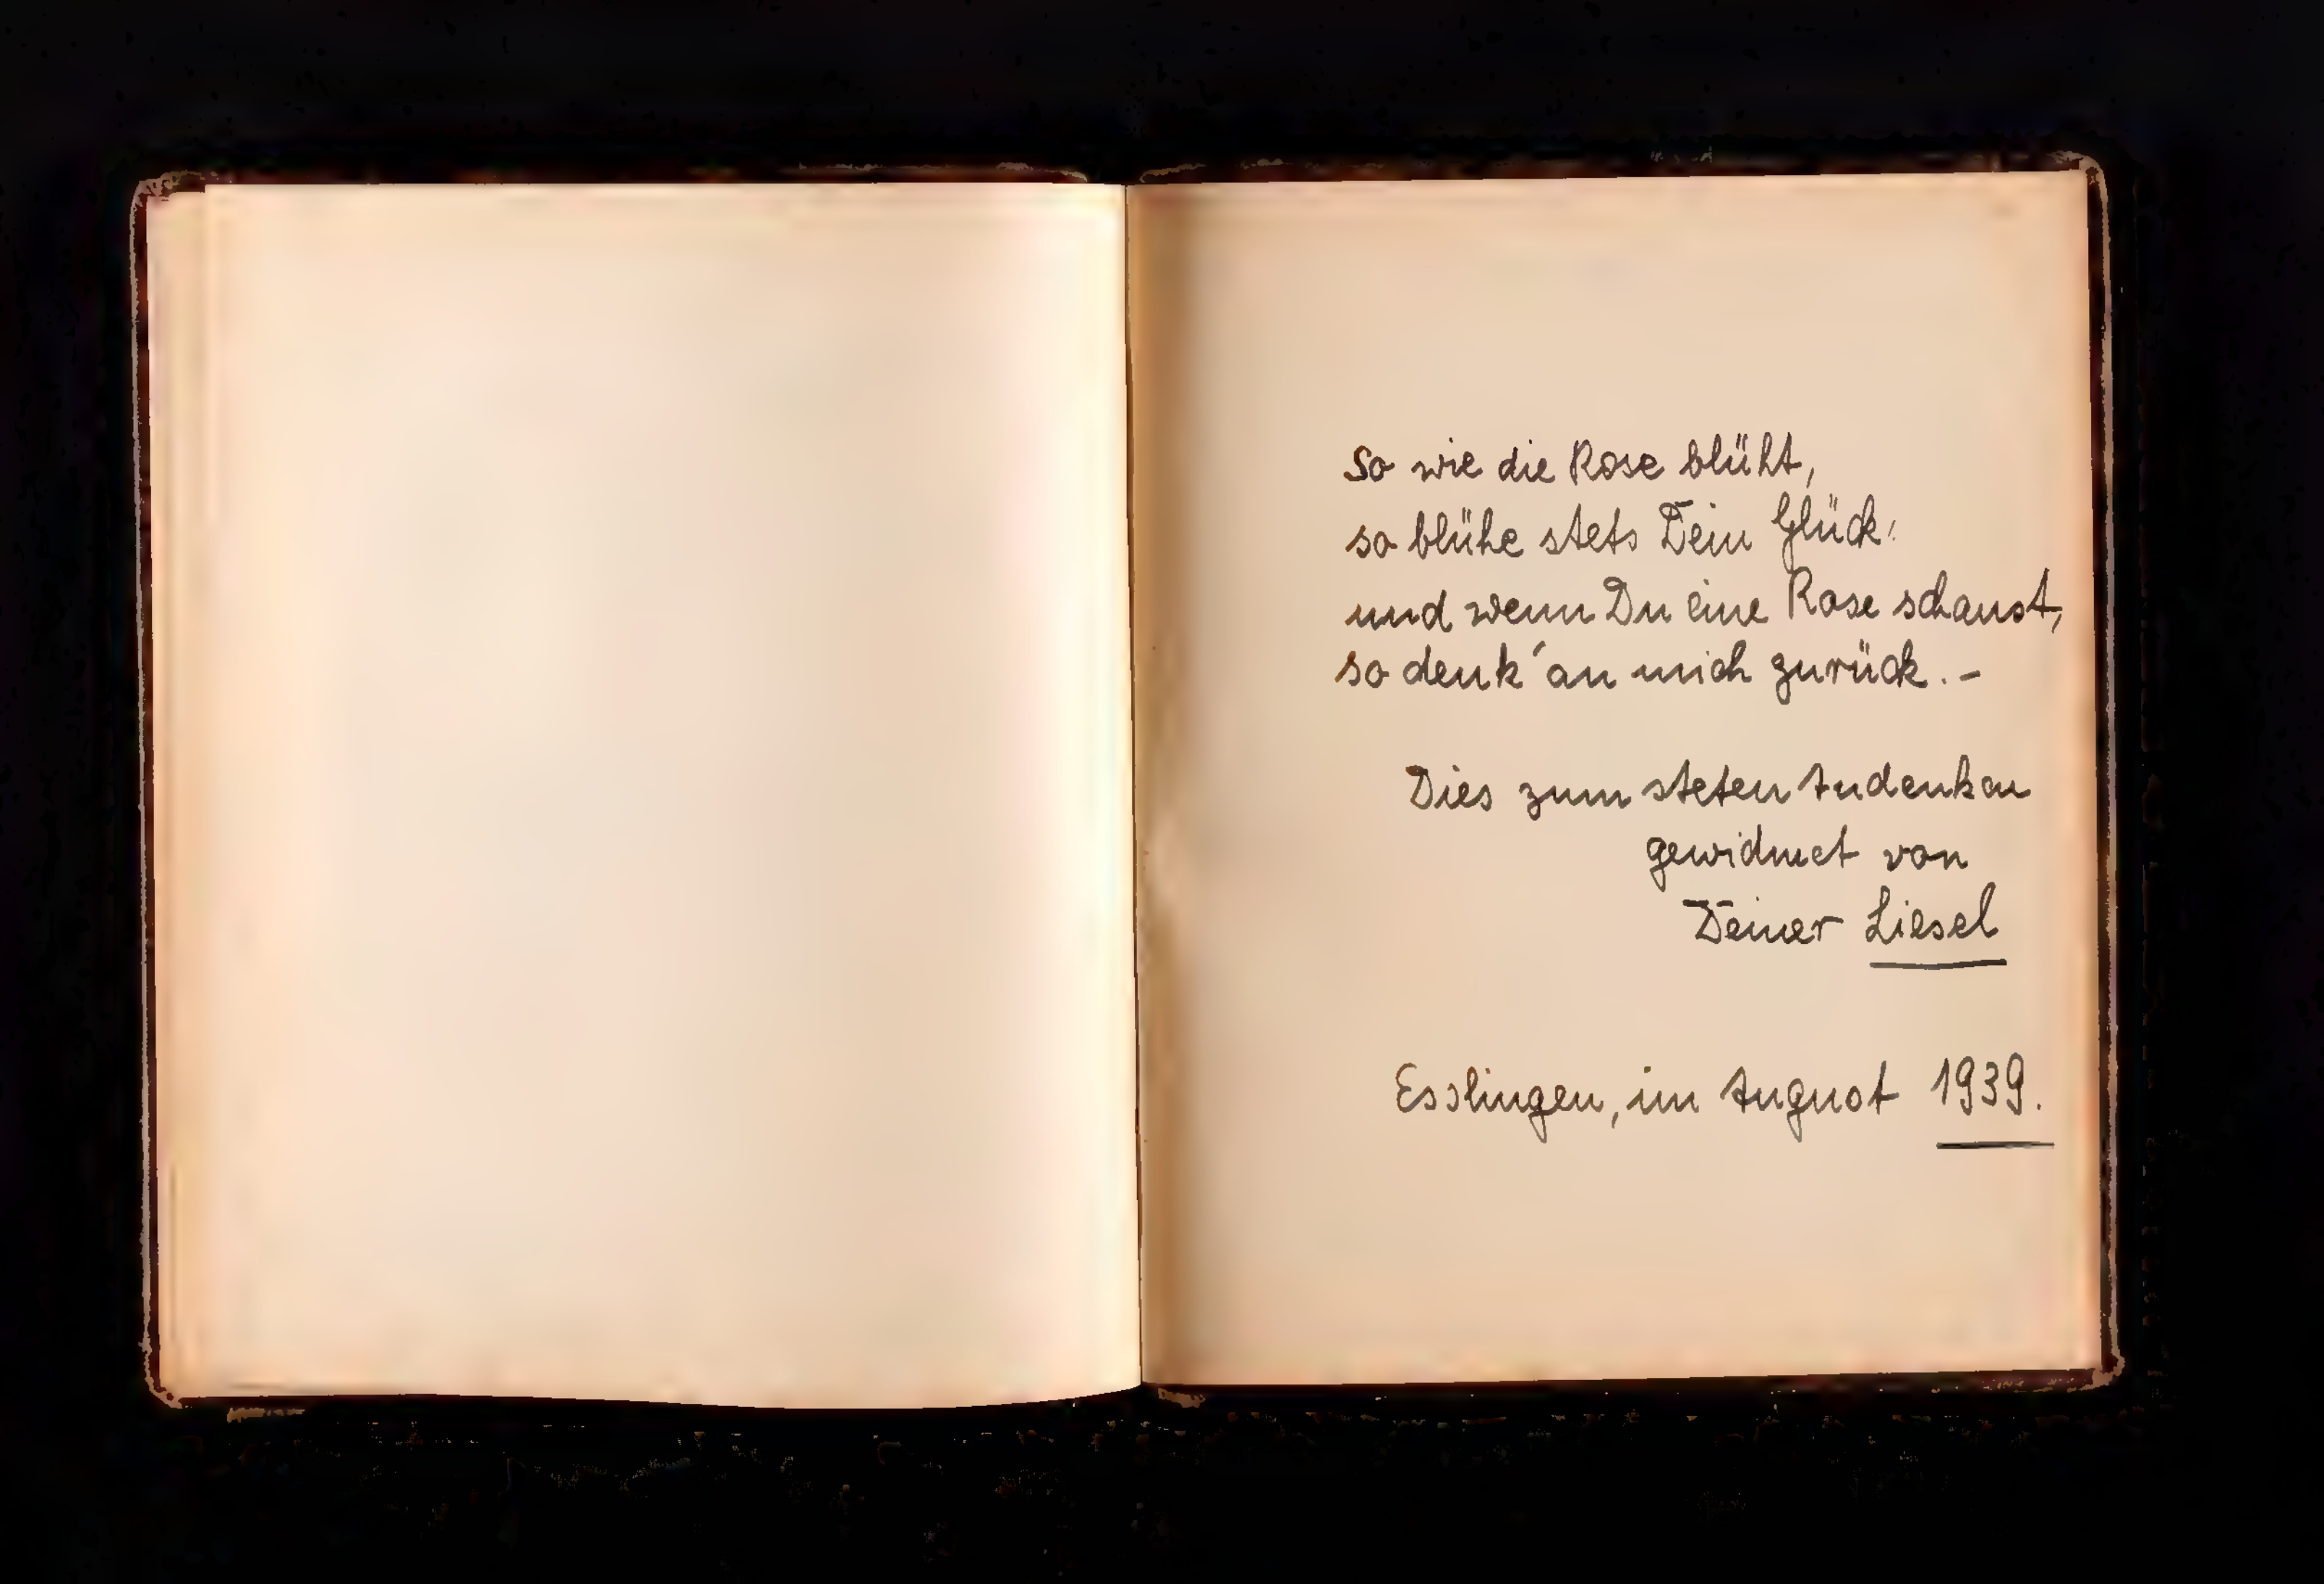 So wie die Rose blüht,
so blühe stets Dein Glück!
und wenn Du eine Rose schaust,
so denk' an mich zurück. –
Dies zum steten Andenken
gewidmet von
Deiner Liesel
Esslingen, im August 1939.